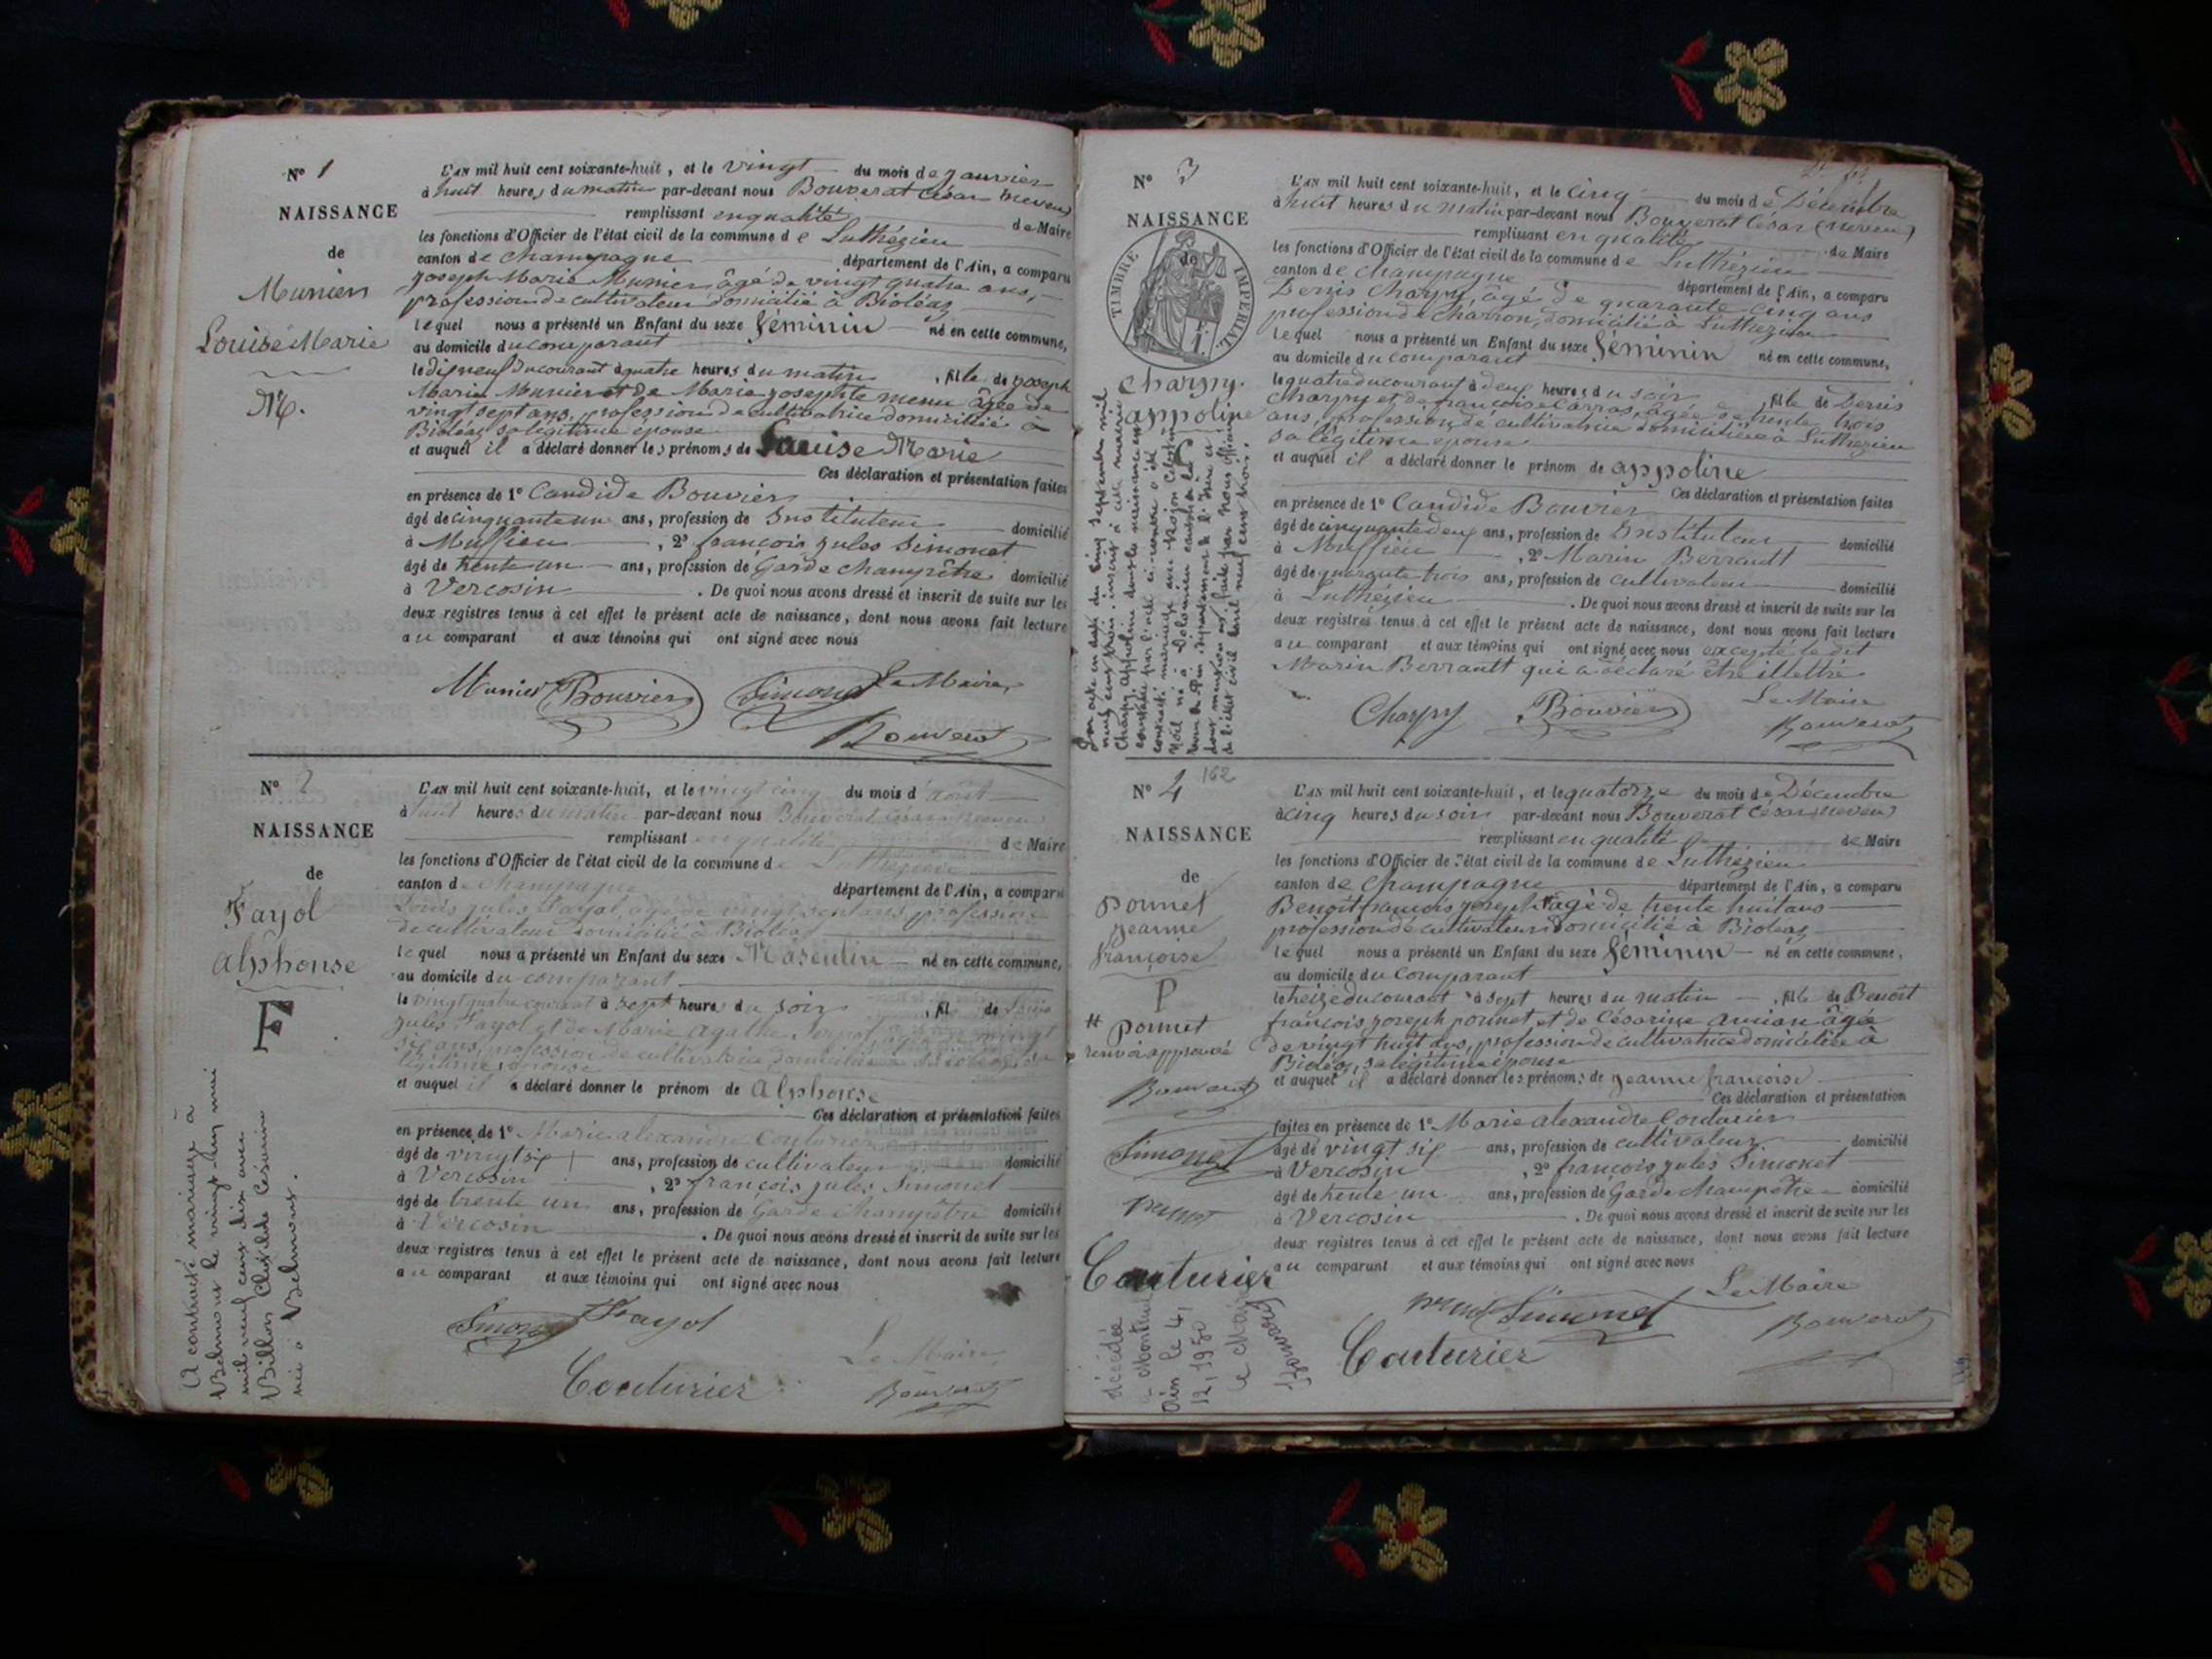 N° 1
NAISSANCE
de
Munier
Louise Marie
M.
L'AN mil huit cent soixante-huit, et le vingt du mois de janvier
à huit heures du matin par-devant nous Bouverat César (neveu)
remplissant en qualité de Maire
les fonctions d'Officier de l'état civil de la commune de Luthézieu
canton de Champagne département de l'Ain, a comparu
Joseph Marie Munier âgé de vingt quatre ans,
profession de cultivateur domicilié à Bioléaz
lequel nous a présenté un Enfant du sexe féminin né en cette commune,
au domicile du comparant
le dixneuf du courant à quatre heures du matin, fille de Joseph
Marie Munier et de Marie Josephte menu âgée de
vingt sept ans, profession de cultivatrice domiciliée à
Bioléaz sa légitime épouse
et auquel il a déclaré donner les prénoms de Louise Marie
Ces déclaration et présentation faites
en présence de 1° Candide Bouvier
âgé de cinquante un ans, profession de Instituteur domicilié
à Muffieu, 2° françois jules Simonet
âgé de trente un ans, profession de Garde champêtre domicilié
à Vercosin. De quoi nous avons dressé et inscrit de suite sur les
deux registres tenus à cet effet le présent acte de naissance, dont nous avons fait lecture
au comparant et aux témoins qui ont signé avec nous
Munier Bouvier Simonet Le Maire
Bouverat
N° 2
NAISSANCE
de
Fayol
Alphonse
F
A contracté mariage à
Belmont le vingt huit mai
mil neuf cent dix avec
Billon Clotilde Césarine
née à Belmont.
L'AN mil huit cent soixante-huit, et le vingt cinq du mois d'août
à huit heures du matin par-devant nous Bouverat César (neveu)
remplissant en qualité de Maire
les fonctions d'Officier de l'état civil de la commune de Luthézieu
canton de Champagne département de l'Ain, a comparu
Louis jules Fayol, âgé de vingt sept ans, profession
de cultivateur domicilié à Bioléaz
lequel nous a présenté un Enfant du sexe Masculin né en cette commune,
au domicile du comparant
le vingt quatre courant à sept heures du soir, fil de Louis
jules Fayol et de Marie agathe âgée de vingt
six ans, profession de cultivatrice domiciliée à Bioléaz sa
légitime épouse
et auquel il a déclaré donner le prénom de Alphonse
Ces déclaration et présentation faites
en présence de 1° Marie alexandre Couturier
âgé de vingt six ans, profession de cultivateur domicilié
à Vercosin, 2° françois jules Simonet
âgé de trente un ans, profession de Garde champêtre domicilié
à Vercosin. De quoi nous avons dressé et inscrit de suite sur les
deux registres tenus à cet effet le présent acte de naissance, dont nous avons fait lecture
au comparant et aux témoins qui ont signé avec nous
Simonet Fayol
Couturier Le Maire
Bouverat
N° 3
NAISSANCE
de
TIMBRE IMPERIAL
Charpy
appoline
Par acte en date du cinq septembre mil
neuf cent trois inscrit à cette mairie
Charpy Appoline dont la naissance est
constatée par l'acte ci-contre a été
contracté mariage avec
Noël né à Dolomieu canton de La
Tour du Pin département de l'Isère et
dont mention est faite par nous officier
de l'état civil neuf cent trois.
L'AN mil huit cent soixante-huit, et le cinq du mois de Décembre
à huit heures du matin par-devant nous Bouverat César (neveu)
remplissant en qualité de Maire
les fonctions d'Officier de l'état civil de la commune de Luthézieu
canton de Champagne département de l'Ain, a comparu
Denis Charpy, âgé de quarante cinq ans
profession de Charron, domicilié à Luthézieu
lequel nous a présenté un Enfant du sexe féminin né en cette commune,
au domicile du comparant
le quatre du courant à deux heures du soir, fille de Denis
Charpy et de françoise Carras, âgée de trente trois
ans, profession de cultivatrice domiciliée à Luthézieu
sa légitime épouse
et auquel il a déclaré donner le prénom de appoline
Ces déclaration et présentation faites
en présence de 1° Candide Bouvier
âgé de cinquante deux ans, profession de Instituteur domicilié
à Muffieu, 2° Marin Berrault
âgé de quarante trois ans, profession de cultivateur domicilié
à Luthézieu. De quoi nous avons dressé et inscrit de suite sur les
deux registres tenus à cet effet le présent acte de naissance, dont nous avons fait lecture
au comparant et aux témoins qui ont signé avec nous excepté le dit
Marin Berrault qui a déclaré être illettré
Charpy Bouvier Le Maire
Bouverat
162
N° 4
NAISSANCE
de
ponnet
jeanne
françoise
P
# ponnet
renvoi approuvé
Bouverat
Simonet
ponnet
Couturier
décédée
à
Ain le 4,
12, 1950
Le Maire
L'AN mil huit cent soixante-huit, et le quatorze du mois de Décembre
à cinq heures du soir par-devant nous Bouverat César (neveu)
remplissant en qualité de Maire
les fonctions d'Officier de l'état civil de la commune de Luthézieu
canton de Champagne département de l'Ain, a comparu
Benoît françois joseph # âgé de trente huit ans
profession de cultivateur domicilié à Bioléaz
lequel nous a présenté un Enfant du sexe féminin né en cette commune,
au domicile du comparant
le treize du courant à sept heures du matin, fille de Benoît
françois joseph ponnet et de Césarine âgée
de vingt huit ans, profession de cultivatrice domiciliée à
Bioléaz, sa légitime épouse
et auquel il a déclaré donner les prénoms de jeanne françoise
Ces déclaration et présentation
faites en présence de 1° Marie alexandre Couturier
âgé de vingt six ans, profession de cultivateur domicilié
à Vercosin, 2° françois jules Simonet
âgé de trente un ans, profession de Garde champêtre domicilié
à Vercosin. De quoi nous avons dressé et inscrit de suite sur les
deux registres tenus à cet effet le présent acte de naissance, dont nous avons fait lecture
au comparant et aux témoins qui ont signé avec nous
ponnet Simonet Le Maire
Couturier Bouverat